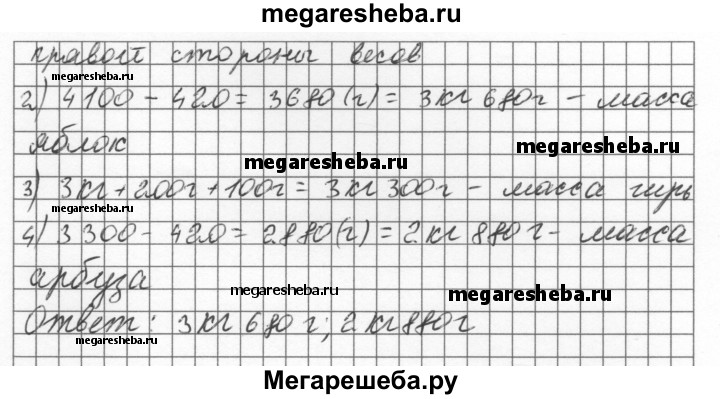 megaresheba.ru
правой стороны весов
megaresheba.ru
2) 4100 - 420 = 3680 (г) = 3 кг 680 г - масса
megaresheba.ru
яблок
megaresheba.ru
3) 3 кг + 200 г + 100 г = 3 кг 300 г - масса гирь
megaresheba.ru
4) 3300 - 420 = 2880 (г) = 2 кг 880 г - масса
арбуза
megaresheba.ru
megaresheba.ru
Ответ: 3 кг 680 г; 2 кг 880 г
megaresheba.ru
Мегарешеба.ру